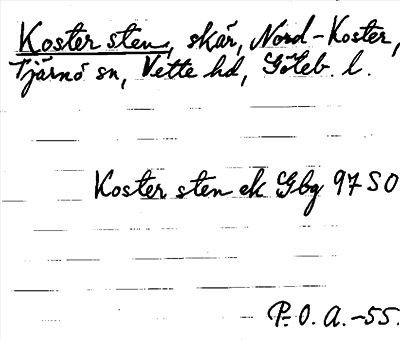 Koster sten, skär, Nord-Koster,
Tjärnö sn, Vette hd, Göteb. l.
Koster sten ek Gbg 97 SO
P.O.A.-55.